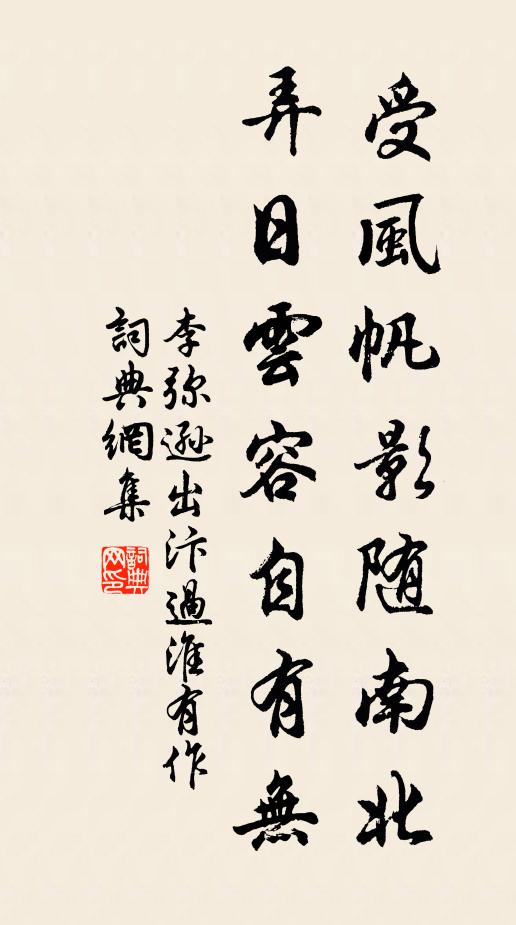 受風帆影随南北
弄日雲容自有無
李弥遜出汴過淮有作
詞典網集
詞典网印